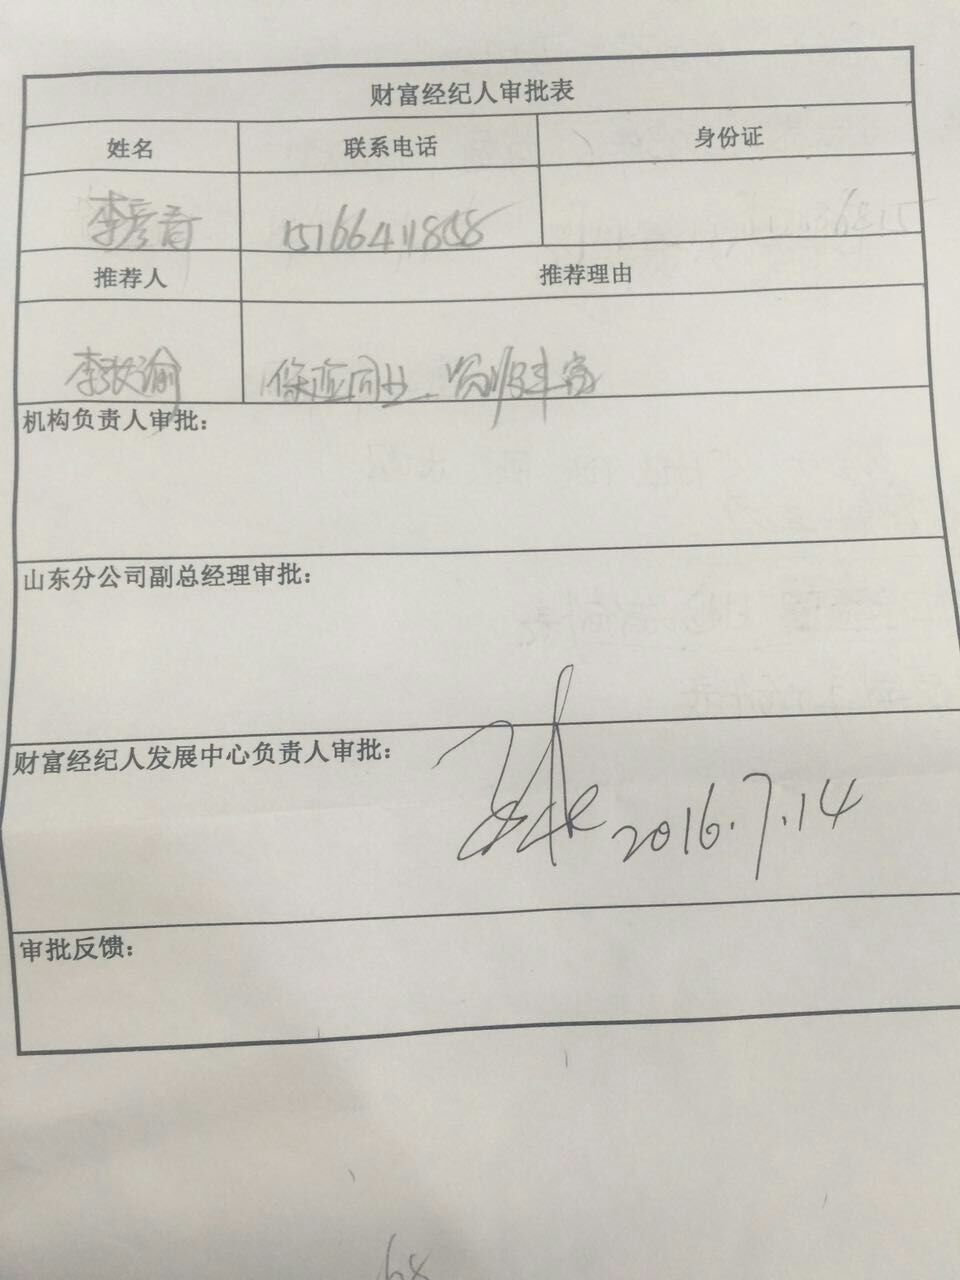 财富经纪人审批表
姓名 联系电话 身份证
李彦奇 15166411858
推荐人 推荐理由
李 渝 保险同业、资源丰富
机构负责人审批：
山东分公司副总经理审批：
财富经纪人发展中心负责人审批：
2016.7.14
审批反馈：
68